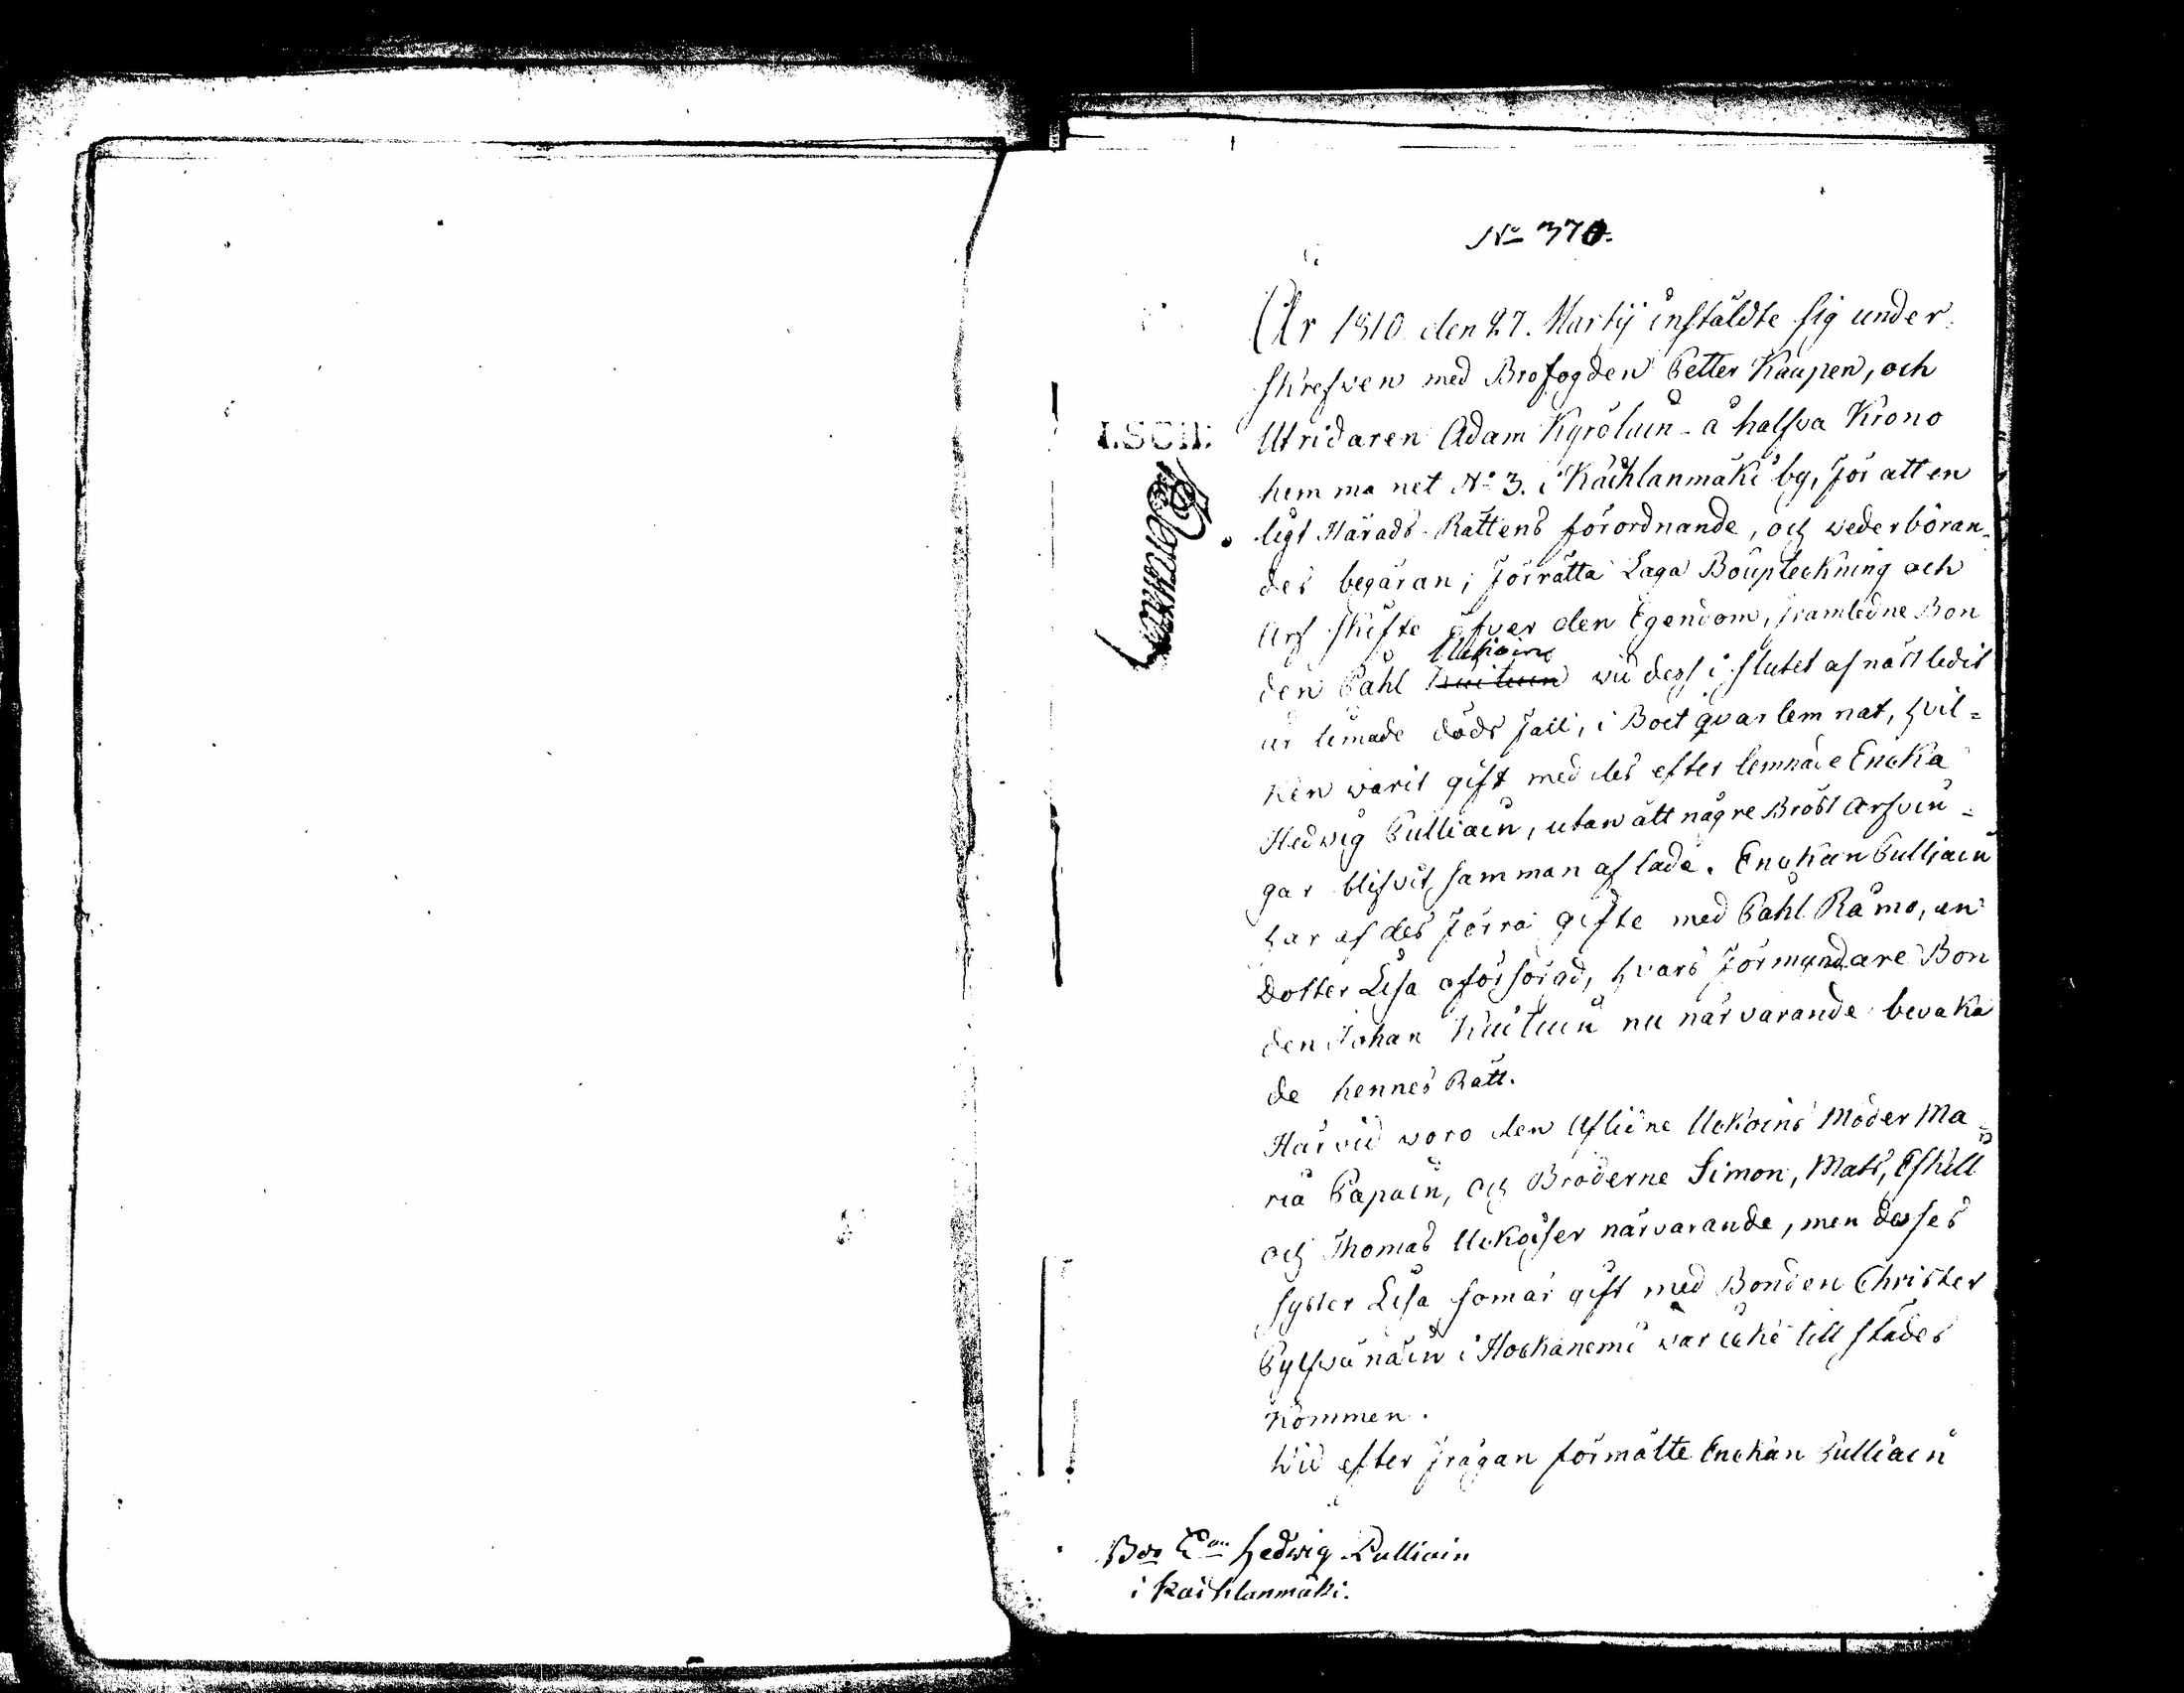 No 370.
År 1810 den 27. Martij instäldte sig under-
skrefven med Brofogden Petter Kaupen, och
Utridaren Adam Kyröläin å halfva Krono
I.SCH:
hemmanet No 3. i Käihlanmäki by, för att en
ligt Härads-Rättens förordnande, och wederböran-
des begäran, förrätta Laga Bouptekning och
Arf skifte öfver den Egendom, framledne Bon
Uckoin
den Påhl Kuituin vid dess i slutet af näst ledit
år timade döds fall, i Boet qvarlemnat, hvil=
ken warit gift med des efter lemnade Encka
Hedvig Pulliain, utan att någre Bröst Arfvin=
gar blifvit samman aflade. Enckan Pulliain
har af des förra gifte med Påhl Rämo, en
Dotter Lisa oförsörgd, hvars förmyndare Bon
den Johan Kuituin nu närvarande bevaka
de hennes Rätt.
Härvid voro den Aflidne Uckoins Moder Ma=
ria Papain, och Bröderne Simon, Mats, Eskill
och Thomas Uckoiser närvarande, men desses
syster Lisa som är gift med Bonden Christer
Pylfvänäin i Hockanemi var icke till städes
kommen.
Vid efter frågan förmälte Enckan Pulliain
Hedwig Pulliain
i Kaihlanmäki.